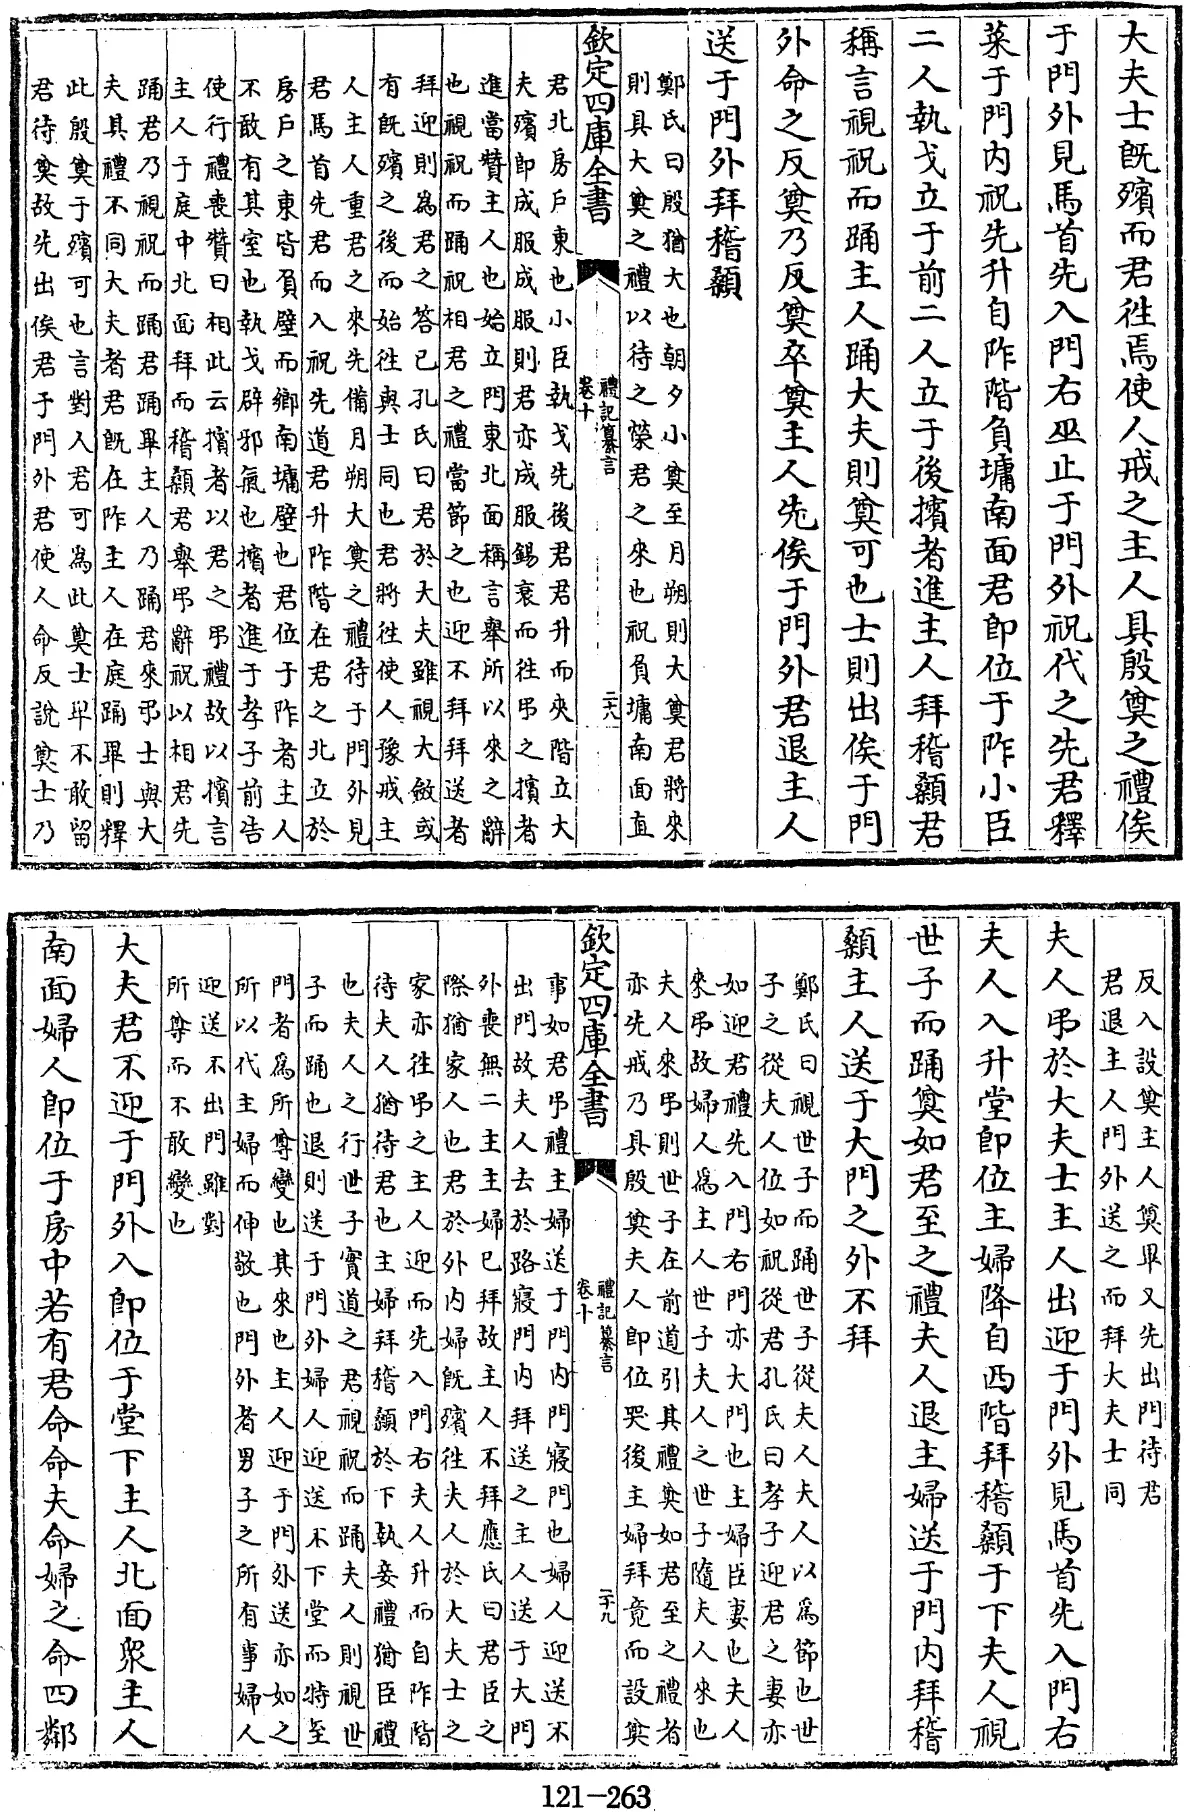 大夫士既殯而君往焉使人戒之主人具殷奠之禮俟
于門外見馬首先入門右巫止于門外祝代之先君釋
菜于門內祝先升自阼階負墉南面君即位于阼小臣
二人執戈立于前二人立于後擯者進主人拜稽顙君
稱言視祝而踊主人踊大夫則奠可也士則出俟于門
外命之反奠乃反奠卒奠主人先俟于門外君退主人
送于門外拜稽顙
鄭氏曰殷猶大也朝夕小奠至月朔則大奠君將來
則具大奠之禮以待之榮君之來也祝負墉南面直
欽定四庫全書
禮記纂言
卷十
二十八
君北房戶東也小臣執戈先後君君升而夾階立大
夫殯即成服成服則君亦成服錫衰而往弔之擯者
進當贊主人也始立門東北面稱言舉所以來之辭
也視祝而踊祝相君之禮當節之也迎不拜拜送者
拜迎則爲君之答已孔氏曰君於大夫雖視大斂或
有既殯之後而始往與士同也君將往使人豫戒主
人主人重君之來先備月朔大奠之禮待于門外見
君馬首先君而入祝先道君升阼階在君之北立於
房戶之東皆負壁而鄉南墉壁也君位于阼者主人
不敢有其室也執戈辟邪氣也擯者進于孝子前告
使行禮喪贊曰相此云擯者以君之弔禮故以擯言
主人于庭中北面拜而稽顙君舉弔辭祝以相君先
踊君乃視祝而踊君踊畢主人乃踊君來弔士與大
夫其禮不同大夫者君既在阼主人在庭踊畢則釋
此殷奠于殯可也言對人君可爲此奠士卑不敢留
君待奠故先出俟君于門外君使人命反設奠士乃
反入設奠主人奠畢又先出門待君
君退主人門外送之而拜大夫士同
夫人弔於大夫士主人出迎于門外見馬首先入門右
夫人入升堂即位主婦降自西階拜稽顙于下夫人視
世子而踊奠如君至之禮夫人退主婦送于門內拜稽
顙主人送于大門之外不拜
鄭氏曰視世子而踊世子從夫人夫人以爲節也世
子之從夫人位如祝從君孔氏曰孝子迎君之妻亦
如迎君禮先入門右門亦大門也主婦臣妻也夫人
來弔故婦人爲主人世子夫人之世子隨夫人來也
夫人來弔則世子在前道引其禮奠如君至之禮者
亦先戒乃具殷奠夫人即位哭後主婦拜竟而設奠
欽定四庫全書
禮記纂言
卷十
二十九
事如君弔禮主婦送于門內門寢門也婦人迎送不
出門故夫人去於路寢門內拜送之主人送于大門
外喪無二主主婦已拜故主人不拜應氏曰君臣之
際猶家人也君於外內婦既殯往夫人於大夫士之
家亦往弔之主人迎而先入門右夫人升而自阼階
待夫人猶待君也主婦拜稽顙於下執妾禮猶臣禮
也夫人之行世子實道之君視祝而踊夫人則視世
子而踊也退則送于門外婦人迎送不下堂而特至
門者爲所尊變也其來也主人迎于門外送亦如之
所以代主婦而伸敬也門外者男子之所有事婦人
迎送不出門雖對
所尊而不敢變也
大夫君不迎于門外入即位于堂下主人北面眾主人
南面婦人即位于房中若有君命命夫命婦之命四鄰
121-263